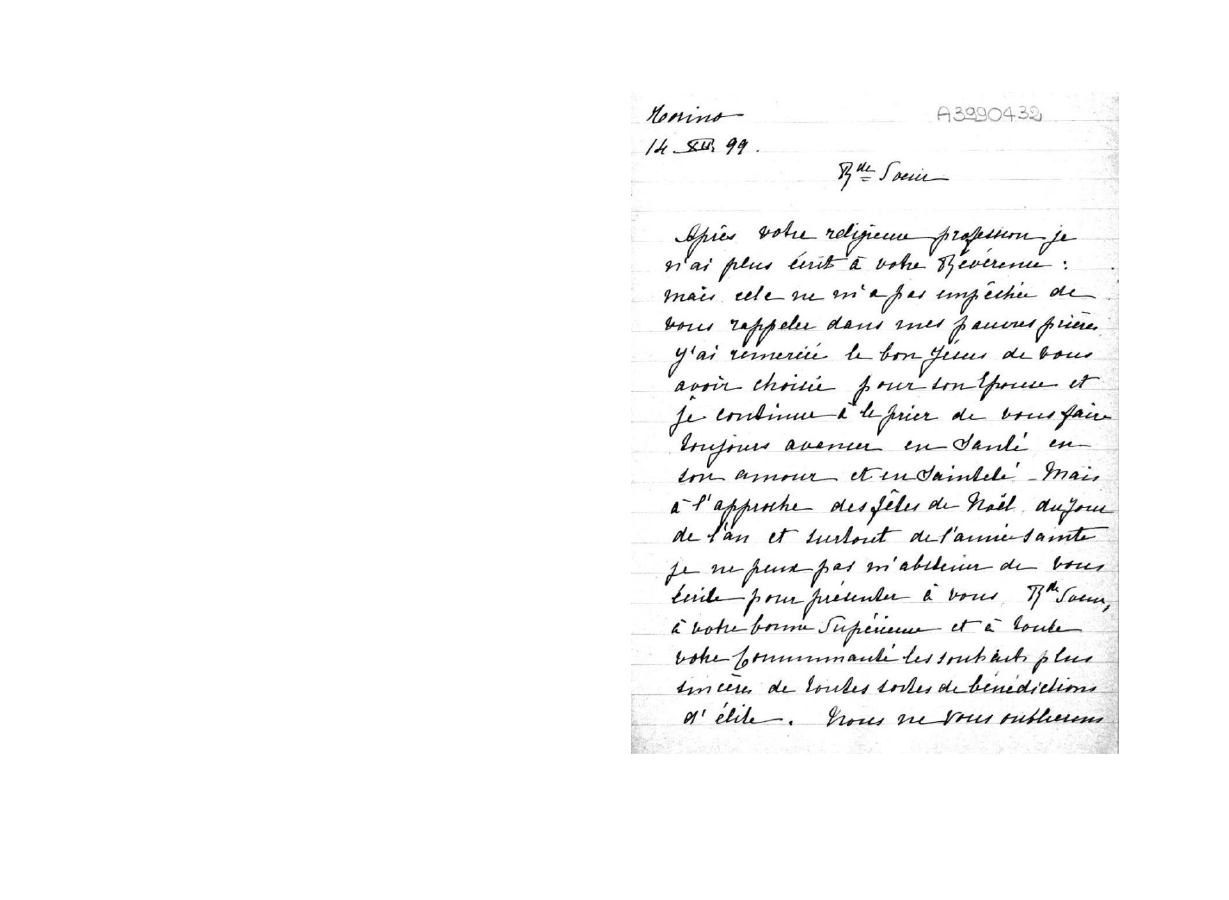 Torino
A3990432
14 XII 99.
Rde Soeur
Après votre religieuse profession je
n'ai plus écrit à votre Révérence :
mais cela ne m'a pas empêchée de
vous rappeler dans mes pauvres prières
j'ai remercié le bon Jésus de vous
avoir choisie pour son Epouse et
je continue à le prier de vous faire
toujours avancer en santé en
son amour et en sainteté - Mais
à l'approche des fêtes de Noël du Jour
de l'an et surtout de l'année sainte
je ne peux pas m'abstenir de vous
écrire pour présenter à vous, Rde Soeur,
à votre bonne Supérieure et à toute
votre Communauté les souhaits plus
sincères de toutes sortes de bénédictions
d'élite. Nous ne vous oublierons